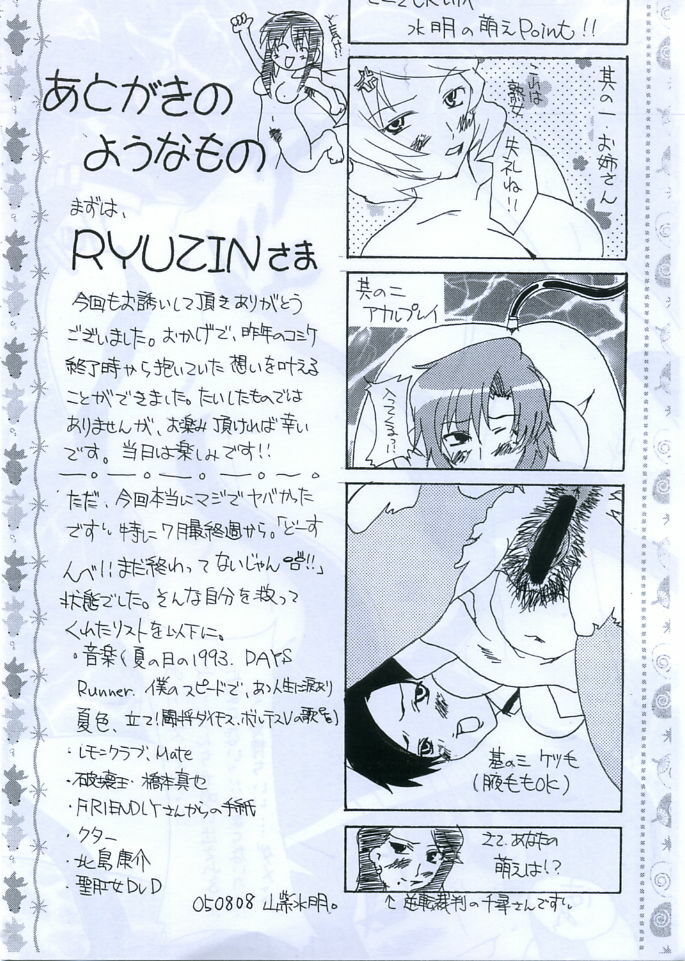 あとがきの
ようなもの
まずは、
RYUZINさま
今回もお誘いして頂きありがとう
ございました。おかげで、昨年のコミケ
終了時から抱いていた想いを叶える
ことができました。たいしたものでは
ありませんが、お楽み頂ければ幸い
です。当日は楽しみです!!
ただ、今回本当にマジでヤバかった
です。特に7月最終週から。「どーす
んべ!!まだ終わってないじゃん!!」
状態でした。そんな自分を救って
くれたリストを以下に。
・音楽(夏の日の1993. DAYS
Runner. 僕のスピードで、あゝ人生に涙あり
夏色、立て!闘将ダイモス、ボルテスVの歌
・レモンクラブ、Mate
・破壊王・橋本真也
・FRIENDLYさんからの手紙
・クター
・北島康介
・聖肛女DVD
050808 山紫水明。
水明の萌えPoint!!
其の一・お姉さん
こらは
熟女
失礼ね!!
其の二
アナルプレイ
入ってくるっ!!
其の三 ケツ毛
(腋毛もOK)
さて、あなたの
萌えは!?
↑逆転裁判の千尋さんです。